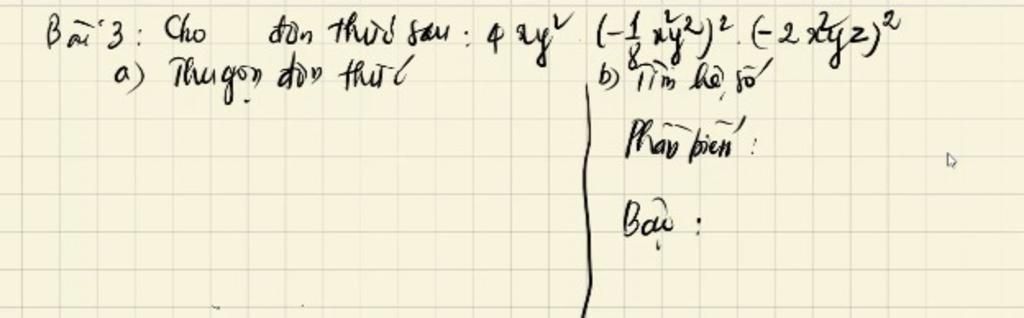 Bài 3: Cho đơn thức sau: 4xy² . (-1/8 x²y²)² . (-2x²yz)²
a) Thu gọn đơn thức
b) Tìm hệ số
Phần biến:
Bậc: